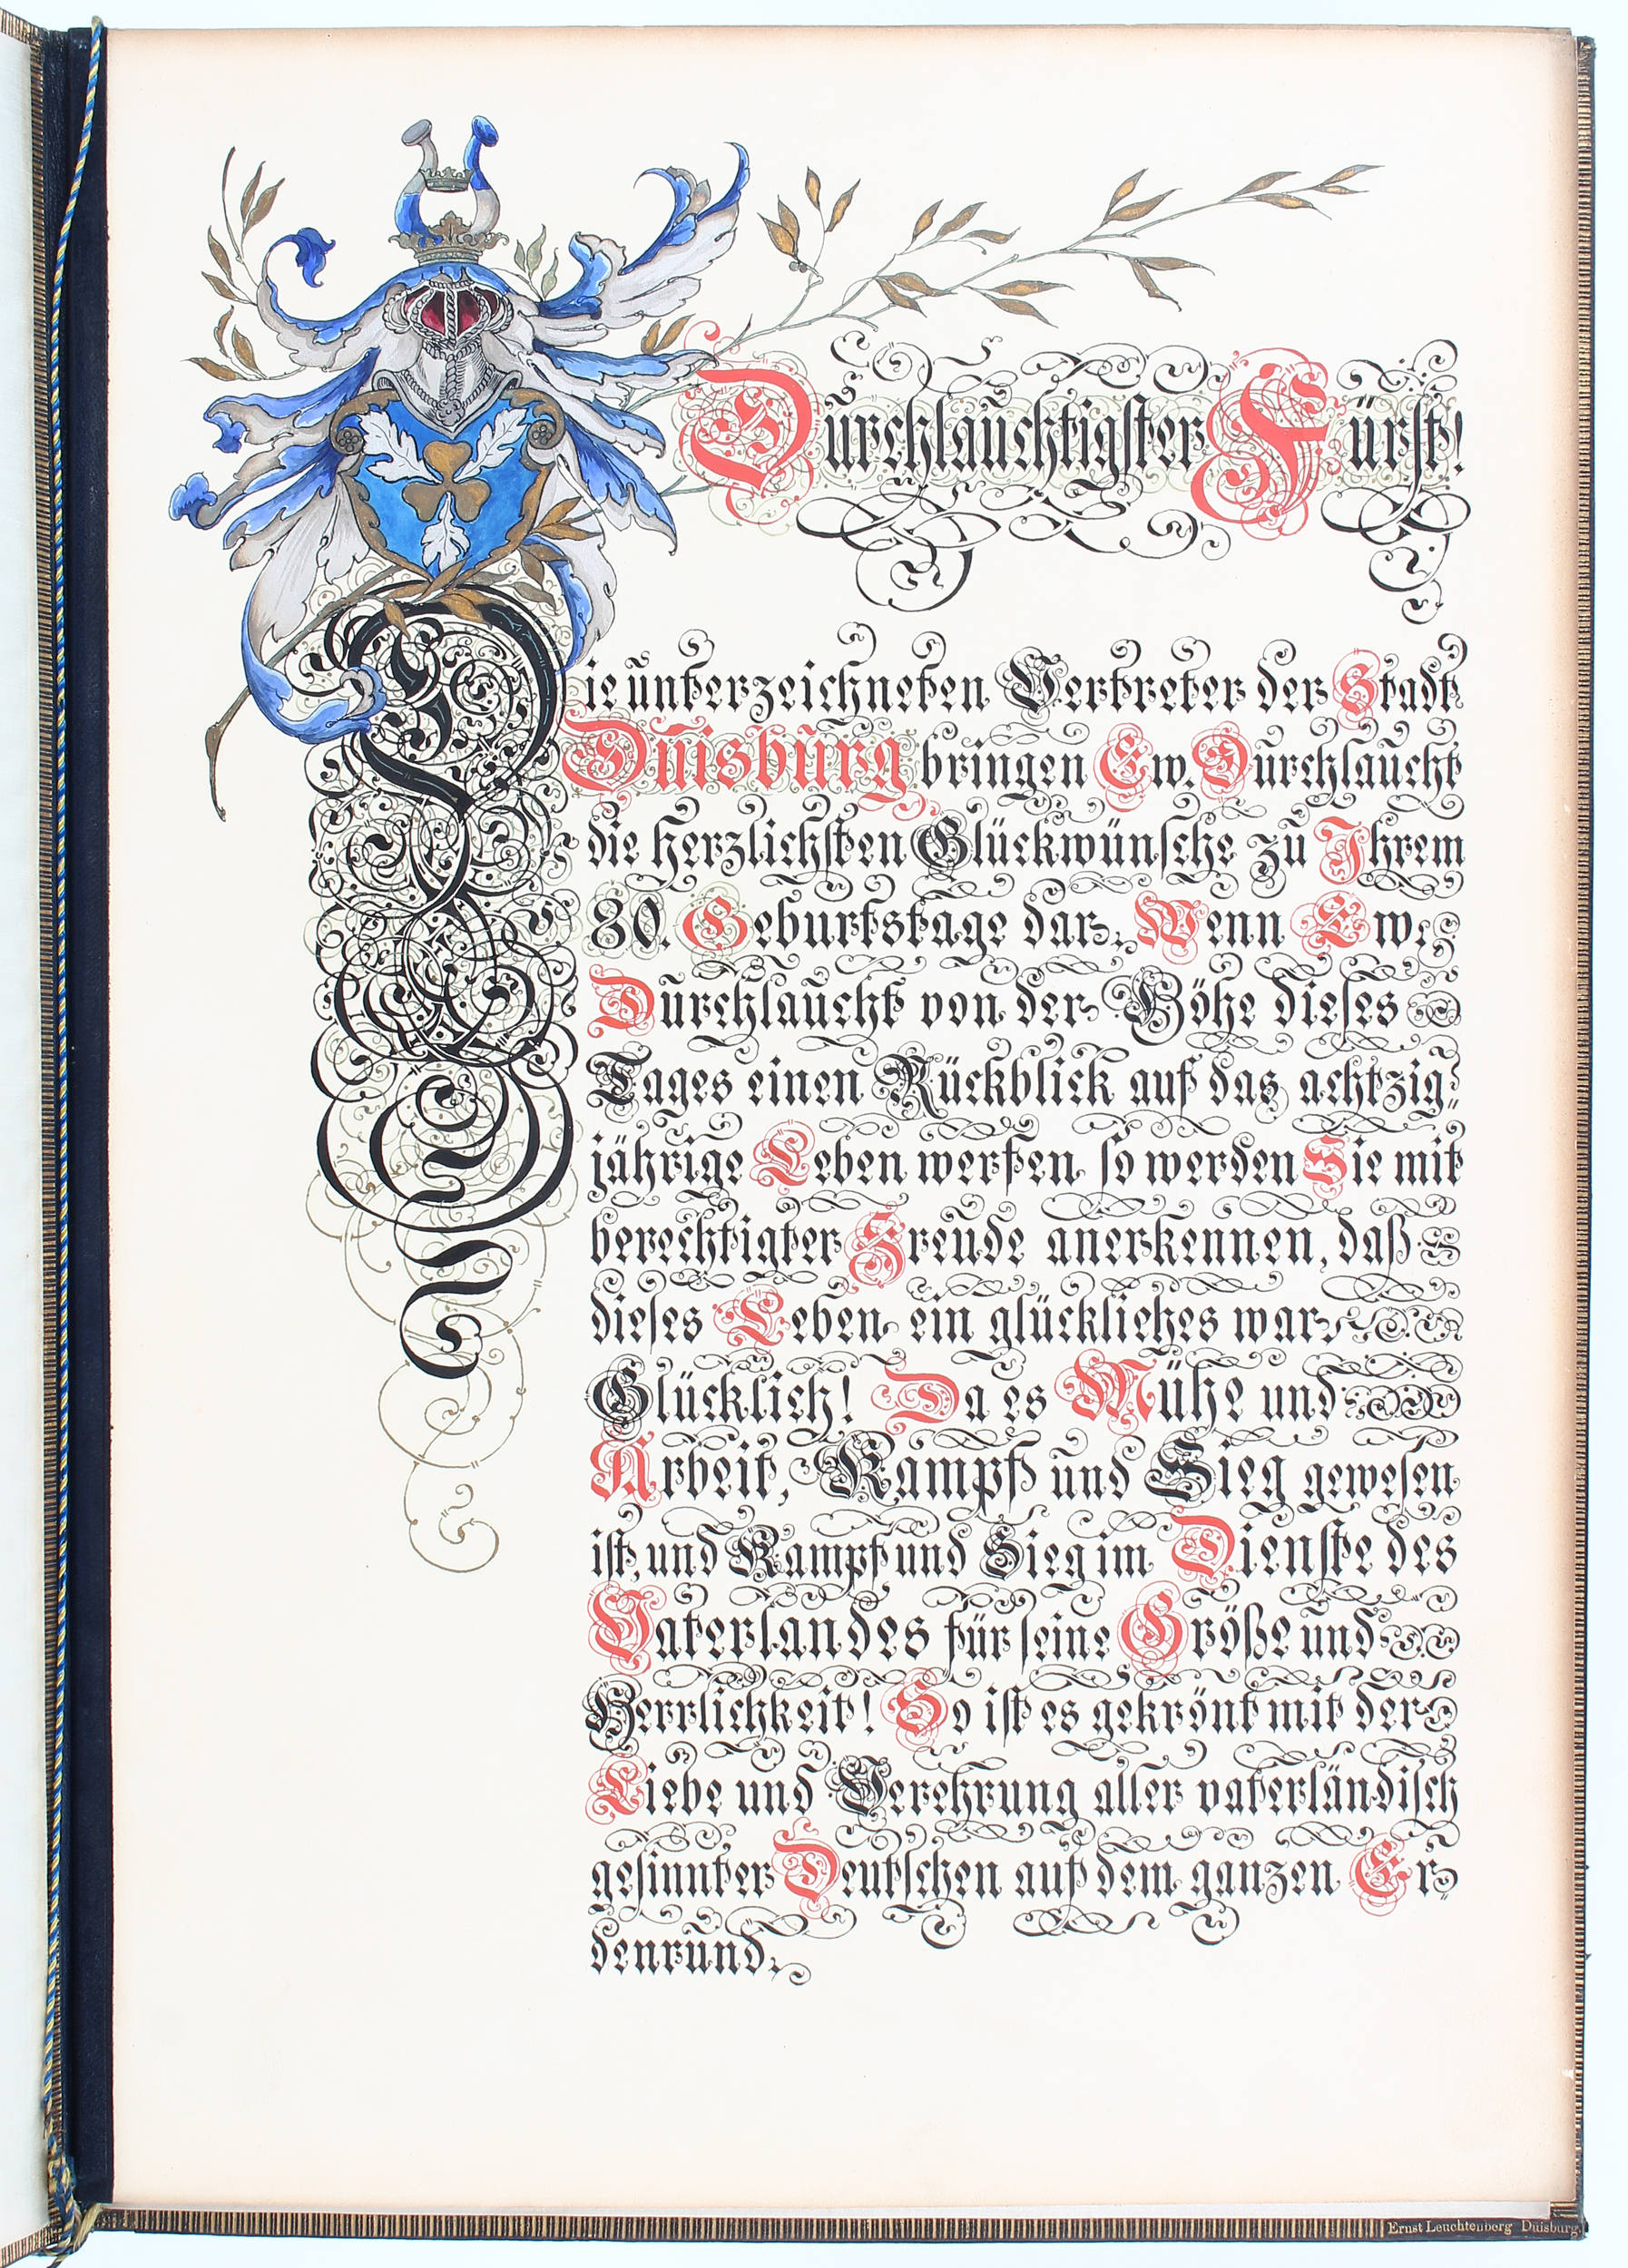 Durchlauchtigster Fürst!
Die unterzeichneten Vertreter der Stadt
Duisburg bringen Ew. Durchlaucht
die herzlichsten Glückwünsche zu Ihrem
80. Geburtstage dar. Wenn Ew.
Durchlaucht von der Höhe dieses
Tages einen Rückblick auf das achtzig-
jährige Leben werfen, so werden Sie mit
berechtigter Freude anerkennen, daß
dieses Leben ein glückliches war.
Glücklich! Da es Mühe und
Arbeit, Kampf und Sieg gewesen
ist, und Kampf und Sieg im Dienste des
Vaterlandes für seine Größe und
Herrlichkeit! So ist es gekrönt mit der
Liebe und Verehrung aller vaterländisch
gesinnter Deutschen auf dem ganzen Er-
denrund.
Ernst Leuchtenberg Duisburg.